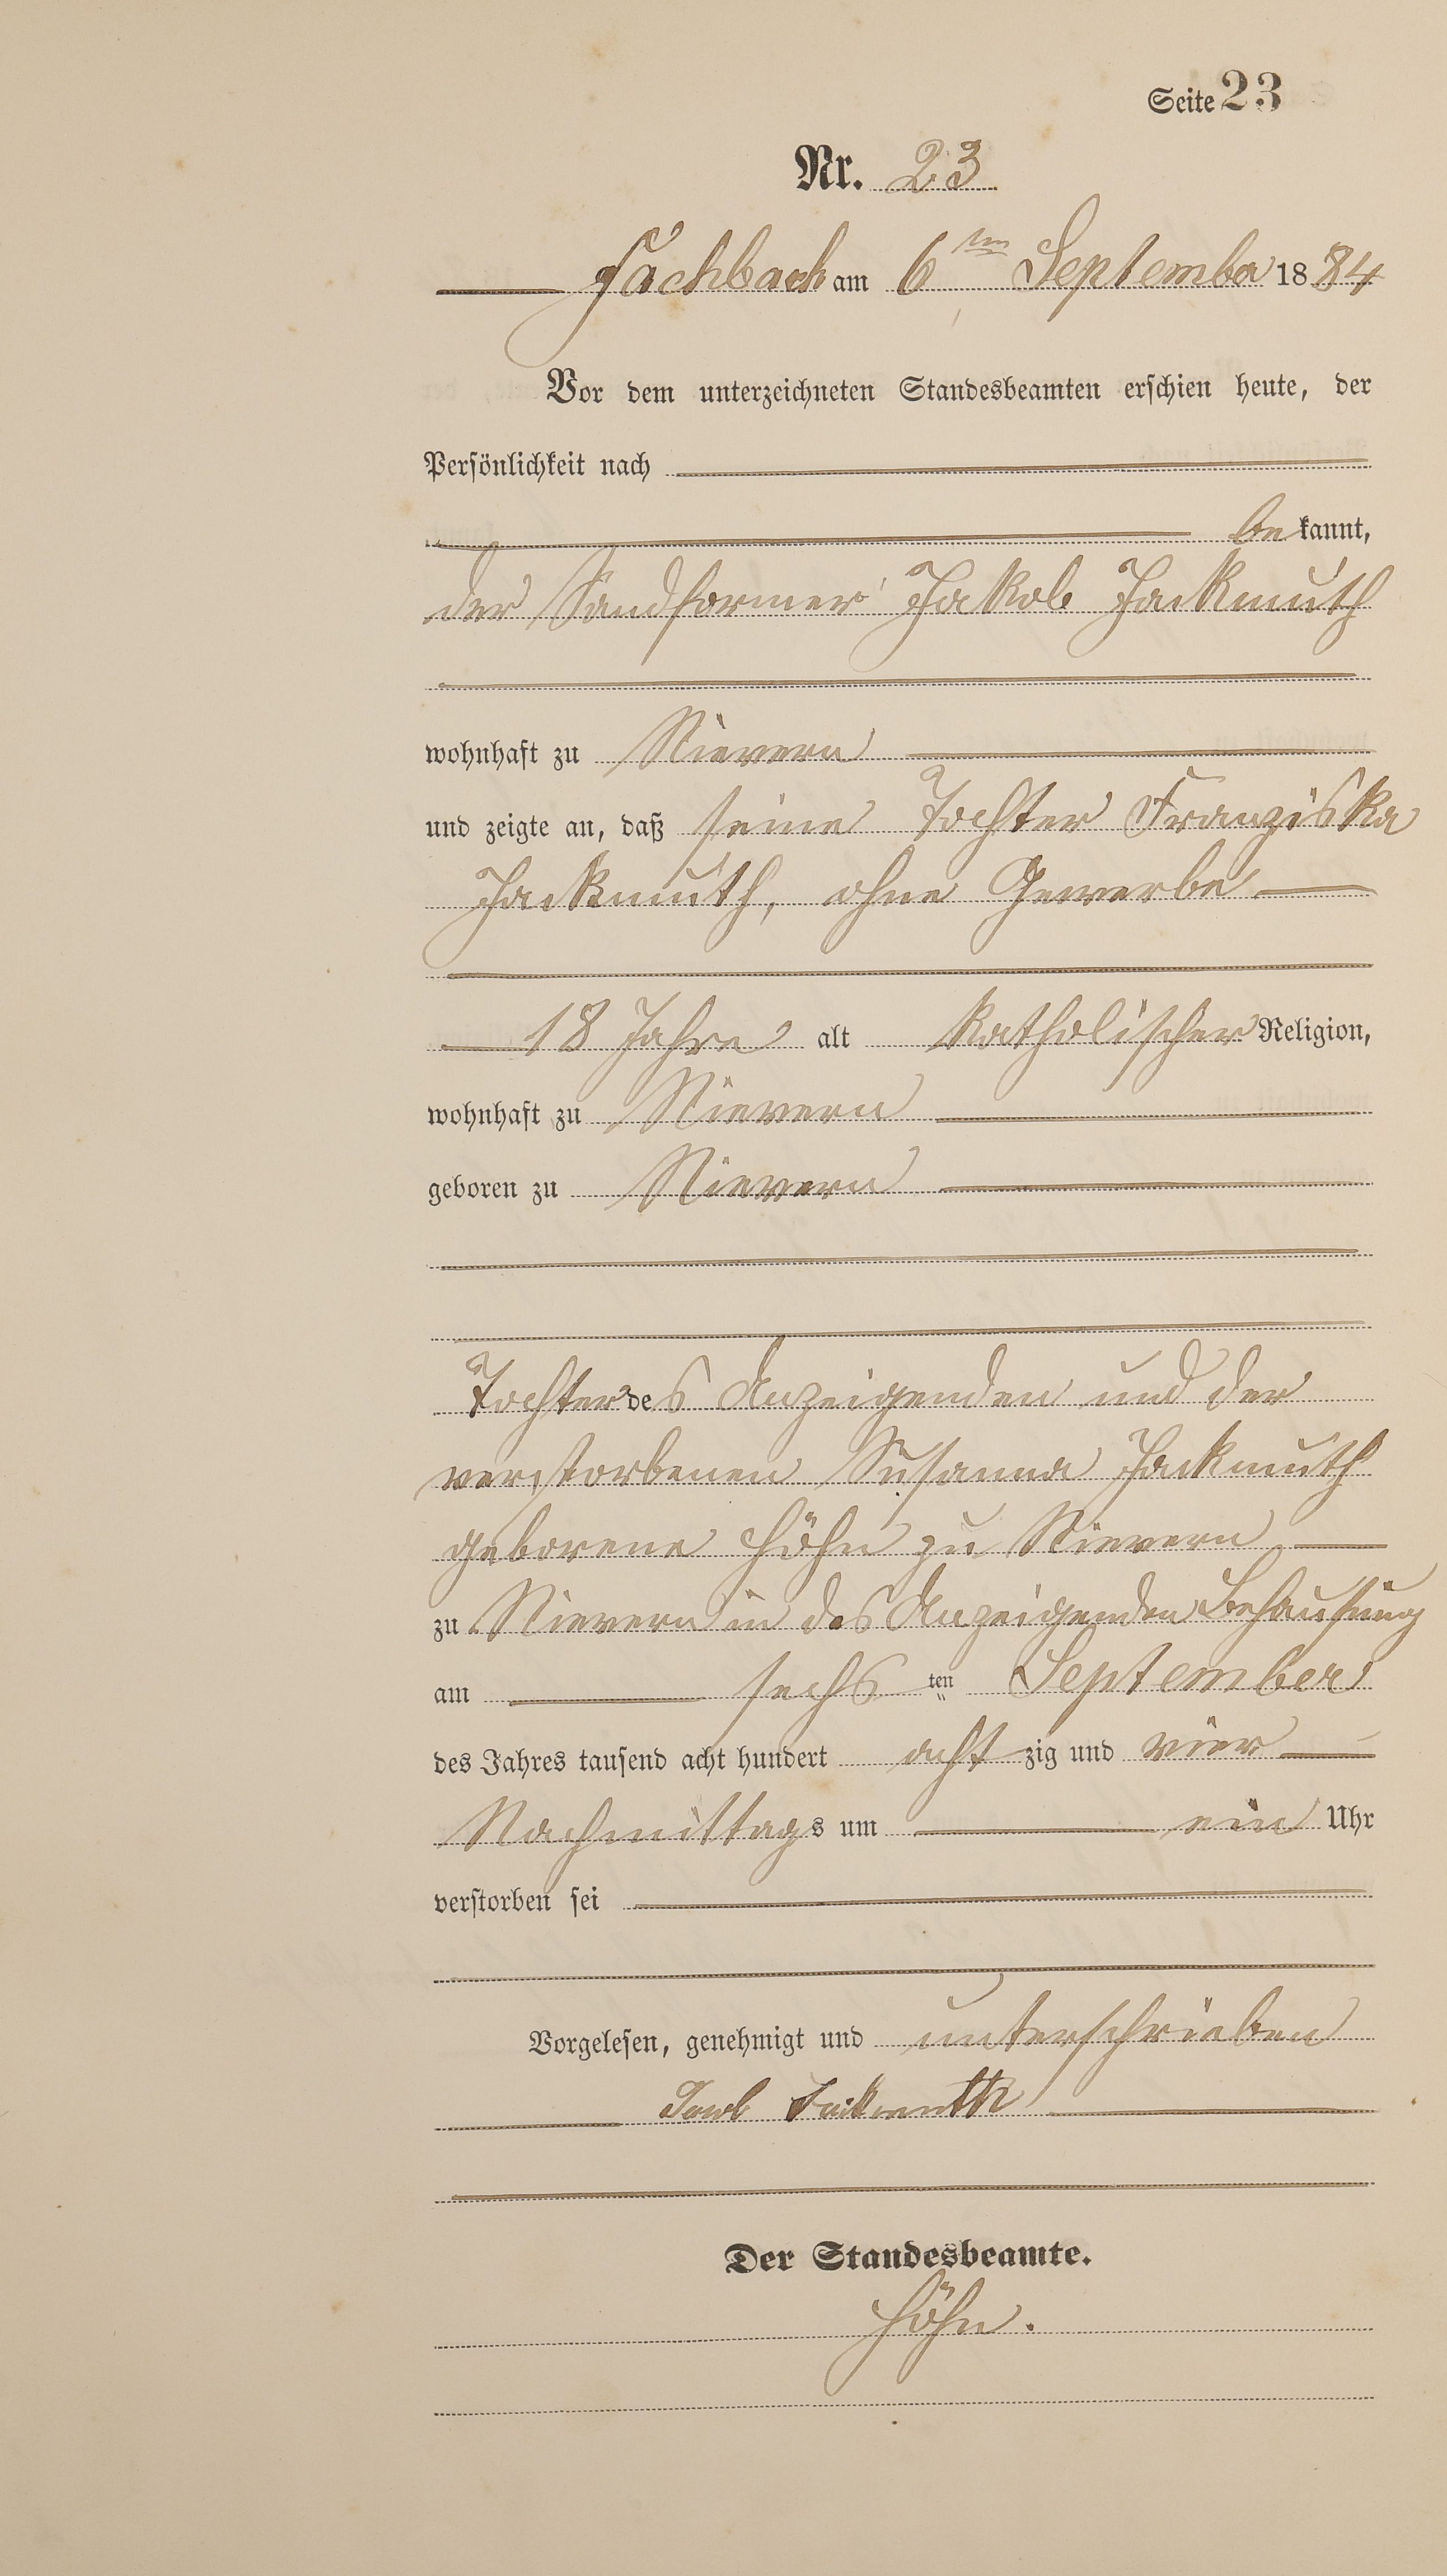 Seite 23
Nr. 23
Fachbach am 6ten September 1884
Vor dem unterzeichneten Standesbeamten erschien heute, der
Persönlichkeit nach
bekannt,
der Sandformer Jakob Jackmuth
wohnhaft zu Nievern
und zeigte an, daß seine Tochter Franziska
Jackmuth, ohne Gewerbe
18 Jahre alt katholischer Religion,
wohnhaft zu Nievern
geboren zu Nievern
Tochter des Anzeigenden und der
verstorbenen Susanna Jackmuth
geborene Höhn zu Nievern
zu Nievern in des Anzeigenden Behausung
am sechsten September
des Jahres tausend acht hundert achtzig und vier
Nachmittags um ein Uhr
verstorben sei
Vorgelesen, genehmigt und unterschrieben
Jackmuth
Der Standesbeamte.
Höhn.